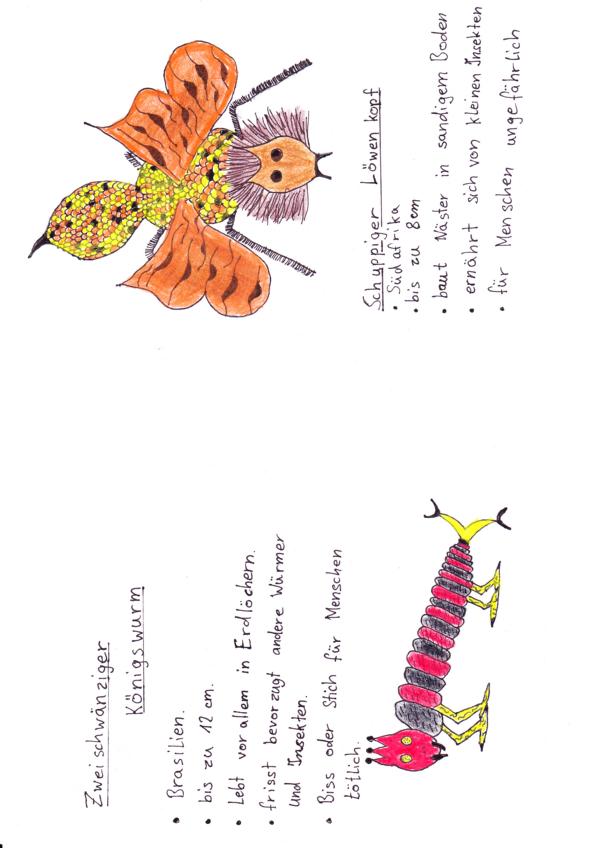 Zweischwänziger
Königswurm
• Brasilien.
• bis zu 12 cm.
• Lebt vor allem in Erdlöchern.
• frisst bevorzugt andere Würmer
und Insekten.
• Biss oder Stich für Menschen
tötlich.
Schuppiger Löwenkopf
• Südafrika
• bis zu 8cm
• baut Näster in sandigem Boden
• ernährt sich von kleinen Insekten
• für Menschen ungefährlich